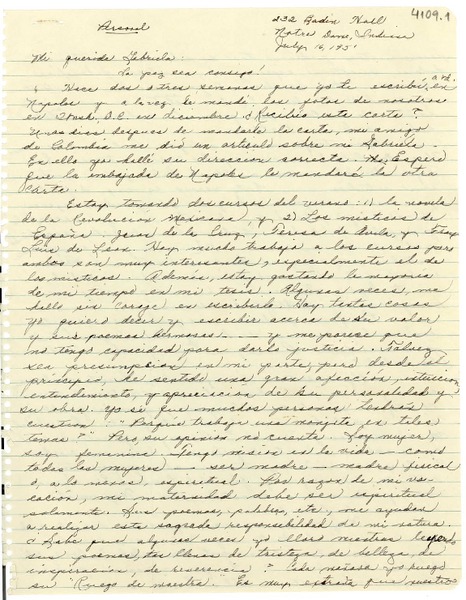 4109.1
Personal
232 Badin Hall
Notre Dame, Indiana
July 16, 1951
Mi querida Gabriela:
La paz sea consigo!
Hace dos o tres semanas que yo le escribí, en
Napoles y a la vez, le mandé las fotos de nosotras
en Wash. D.C. en diciembre. ¿Recibió esta carta?
Unos dias despues de mandarle la carta, mi amigo
de Colombia me dió un articulo sobre mi Gabriela.
En ello yo hallé su direccion correcta. Me espero
que la embajada de Napoles le mandará la otra
carta.
Estoy tomando dos cursos del verano: 1) la novela
de la Revolucion Mexicana, y 2) Los misticos de
España, Juan de la Cruz, Teresa de Avila, y Fray
Luis de Leon. Hay mucho trabajo a los cursos pero
ambos son muy interesantes, especialmente el de
los misticos. Además, estoy gastando la mayoria
de mi tiempo en mi tesis. Algunas veces, me
hallo sin coraje en escribirla. Hay tantas cosas
yo quiero decir y escribir acerca de su valor
y sus poemas hermosas — y me parece que
no tengo capacidad para darlo justicia. Talvez
sea presumpcion en mi parte, pero desde el
principio, he sentido una gran aficcion, intuicion,
entendimiento, y apreciacion de su personalidad y
su obra. Yo sé que muchas personas tendrán
cuestion. "Porqué trabaje una monjita en tales
temas?" Pero, su opinion no cuenta. Soy mujer,
soy feminina. Tengo mision en la vida — como
todas las mujeres — ser madre — madre fisical
o, a lo menos, espiritual. Por razon de mi vo-
cación, mi maternidad debe ser espiritual
solamente. Sus poemas, palabras, etc, me ayudan
a realizar esta sagrada responsibilidad de mi natura.
¿Sabe que algunas veces yo lloro mientras leyendo
sus poemas, tan llenas de tristeza, de belleza, de
inspiración, de reverencia? Cada mañana yo ruego
su "Ruego de maestra." Es muy extraña que nuestro